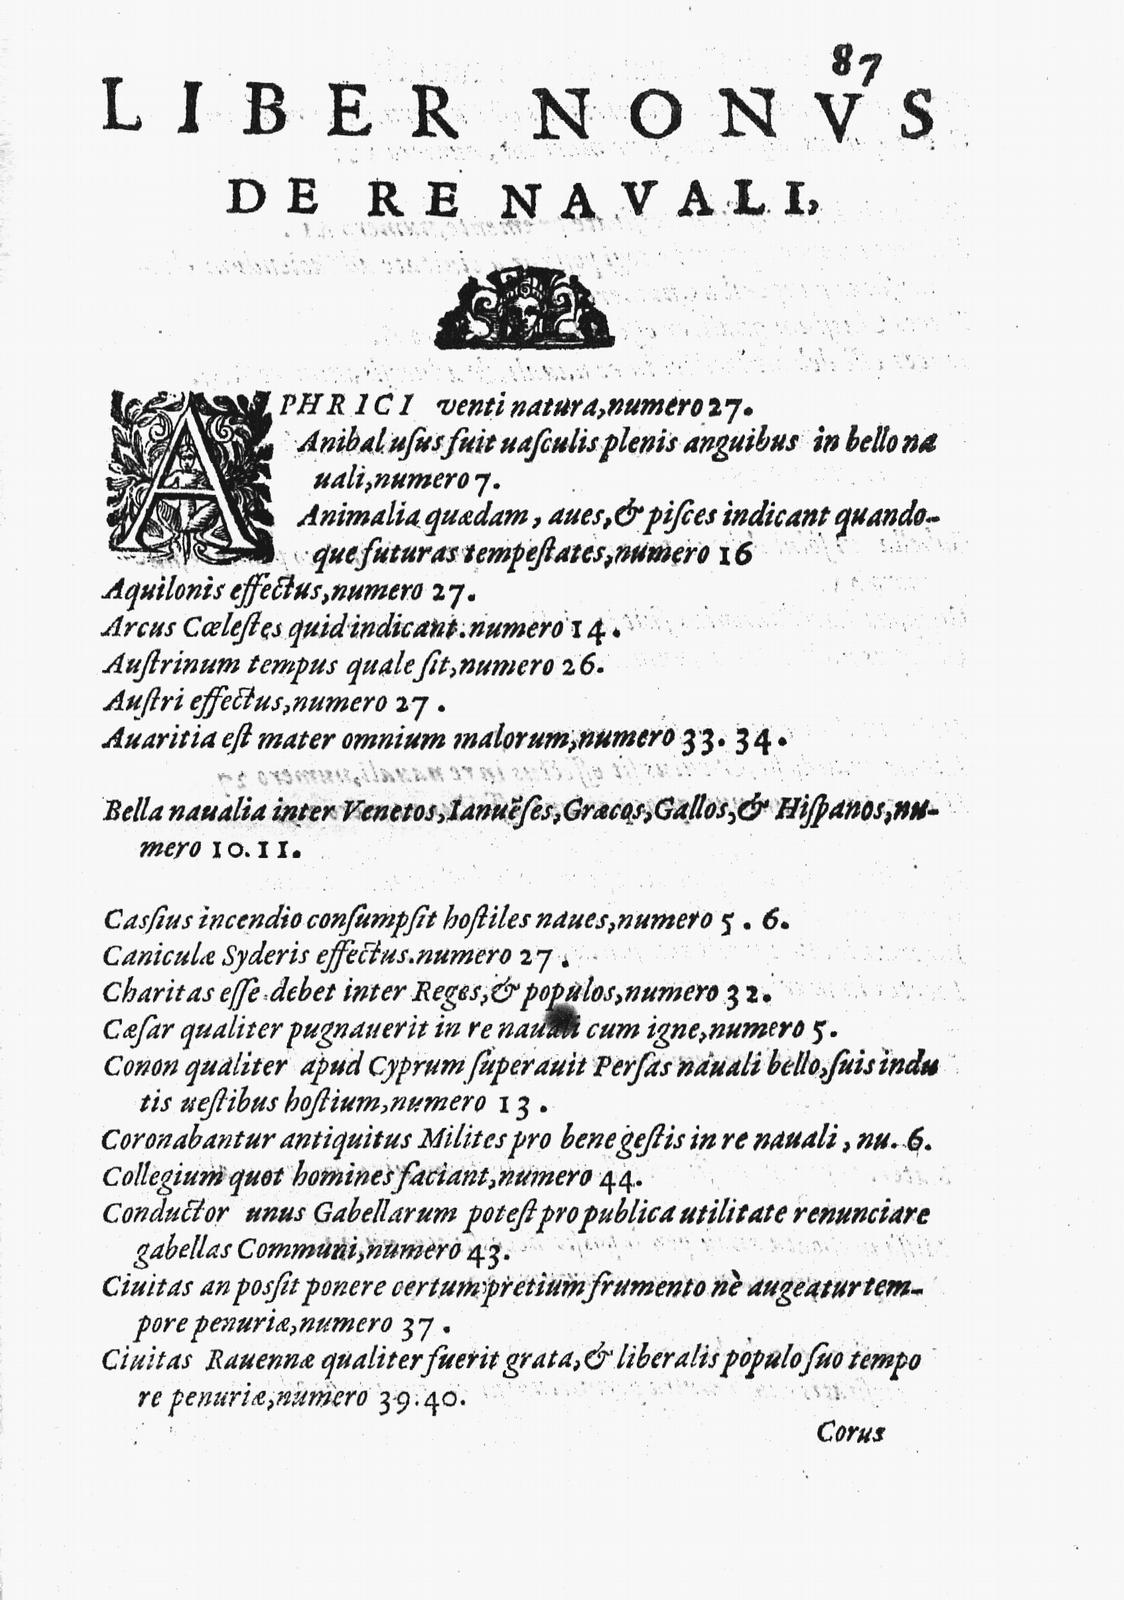 87
LIBER NONVS
DE RE NAVALI,
APHRICI venti natura,numero 27.
Anibal uſus fuit uaſculis plenis anguibus in bello na
uali,numero 7.
Animalia quædam, aues,& piſces indicant quando-
que futuras tempeſtates,numero 16
Aquilonis effectus,numero 27.
Arcus Cæleſtes quid indicant.numero 14.
Auſtrinum tempus quale ſit,numero 26.
Auſtri effectus,numero 27.
Auaritia eſt mater omnium malorum,numero 33. 34.
Bella naualia inter Venetos,Ianuẽſes,Græcos,Gallos,& Hiſpanos,nu-
mero 10.11.
Caſsius incendio conſumpſit hoſtiles naues,numero 5. 6.
Caniculæ Syderis effectus.numero 27.
Charitas eſſe debet inter Reges,& populos,numero 32.
Cæſar qualiter pugnauerit in re nauali cum igne,numero 5.
Conon qualiter apud Cyprum ſuperauit Perſas nauali bello,ſuis indu
tis ueſtibus hoſtium,numero 13.
Coronabantur antiquitus Milites pro bene geſtis in re nauali, nu. 6.
Collegium quot homines faciant,numero 44.
Conductor unus Gabellarum poteſt pro publica utilitate renunciare
gabellas Communi,numero 43.
Ciuitas an poſſit ponere certum pretium frumento nè augeatur tem-
pore penuriæ,numero 37.
Ciuitas Rauennæ qualiter fuerit grata,& liberalis populo ſuo tempo
re penuriæ,numero 39.40.
Corus